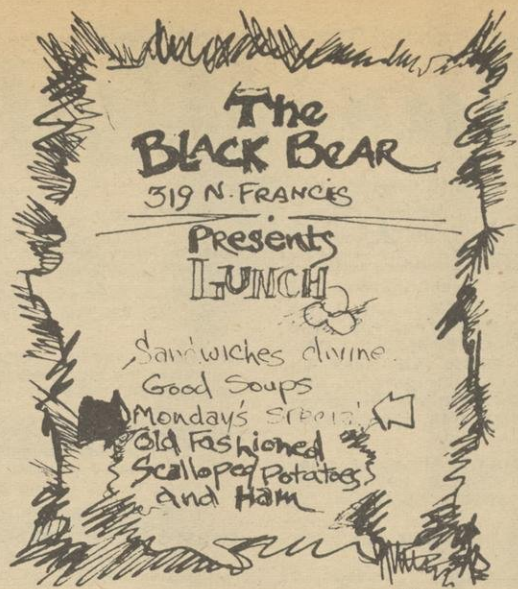 The
BLACK BEAR
319 N. FRANCIS
Presents
LUNCH
Sandwiches divine
Good Soups
Monday's Special
Old Fashioned
Scalloped Potatoes
and Ham